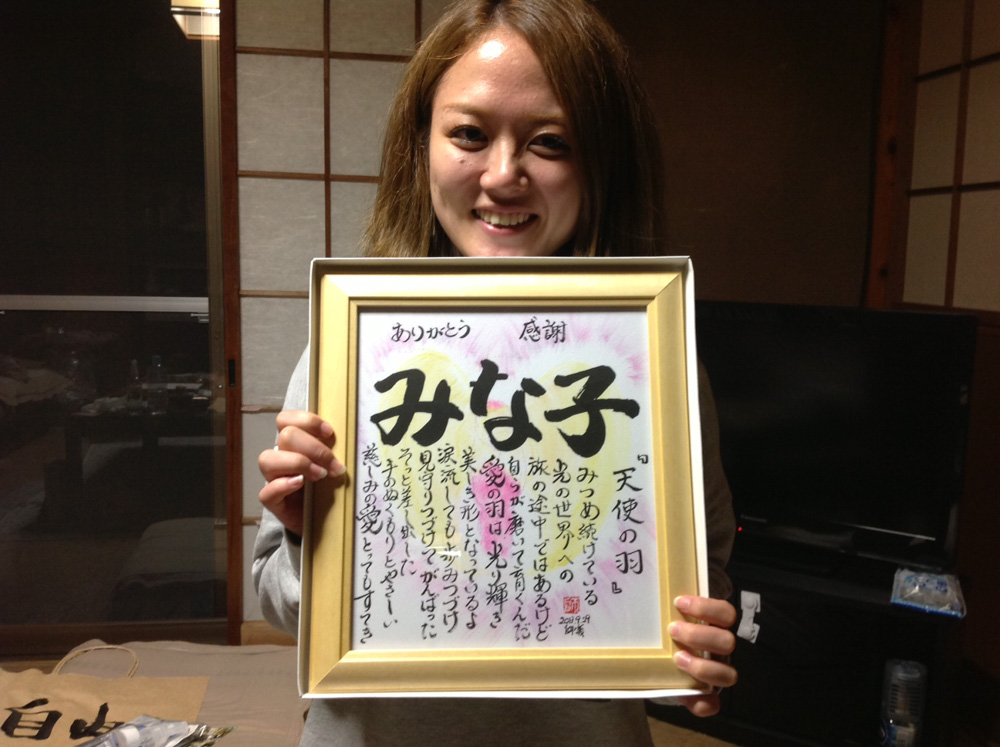 ありがとう 感謝
みな子
『天使の羽』
みつめ続けている
光の世界への
旅の途中ではあるけど
自らが磨いて育くんだ
愛の羽は光り輝き
美しき形となっているよ
涙流しても歩みつづけ
見守りつづけてがんばった
そっと差し出した
手のぬくもりとやさしい
慈しみの愛とってもすてき